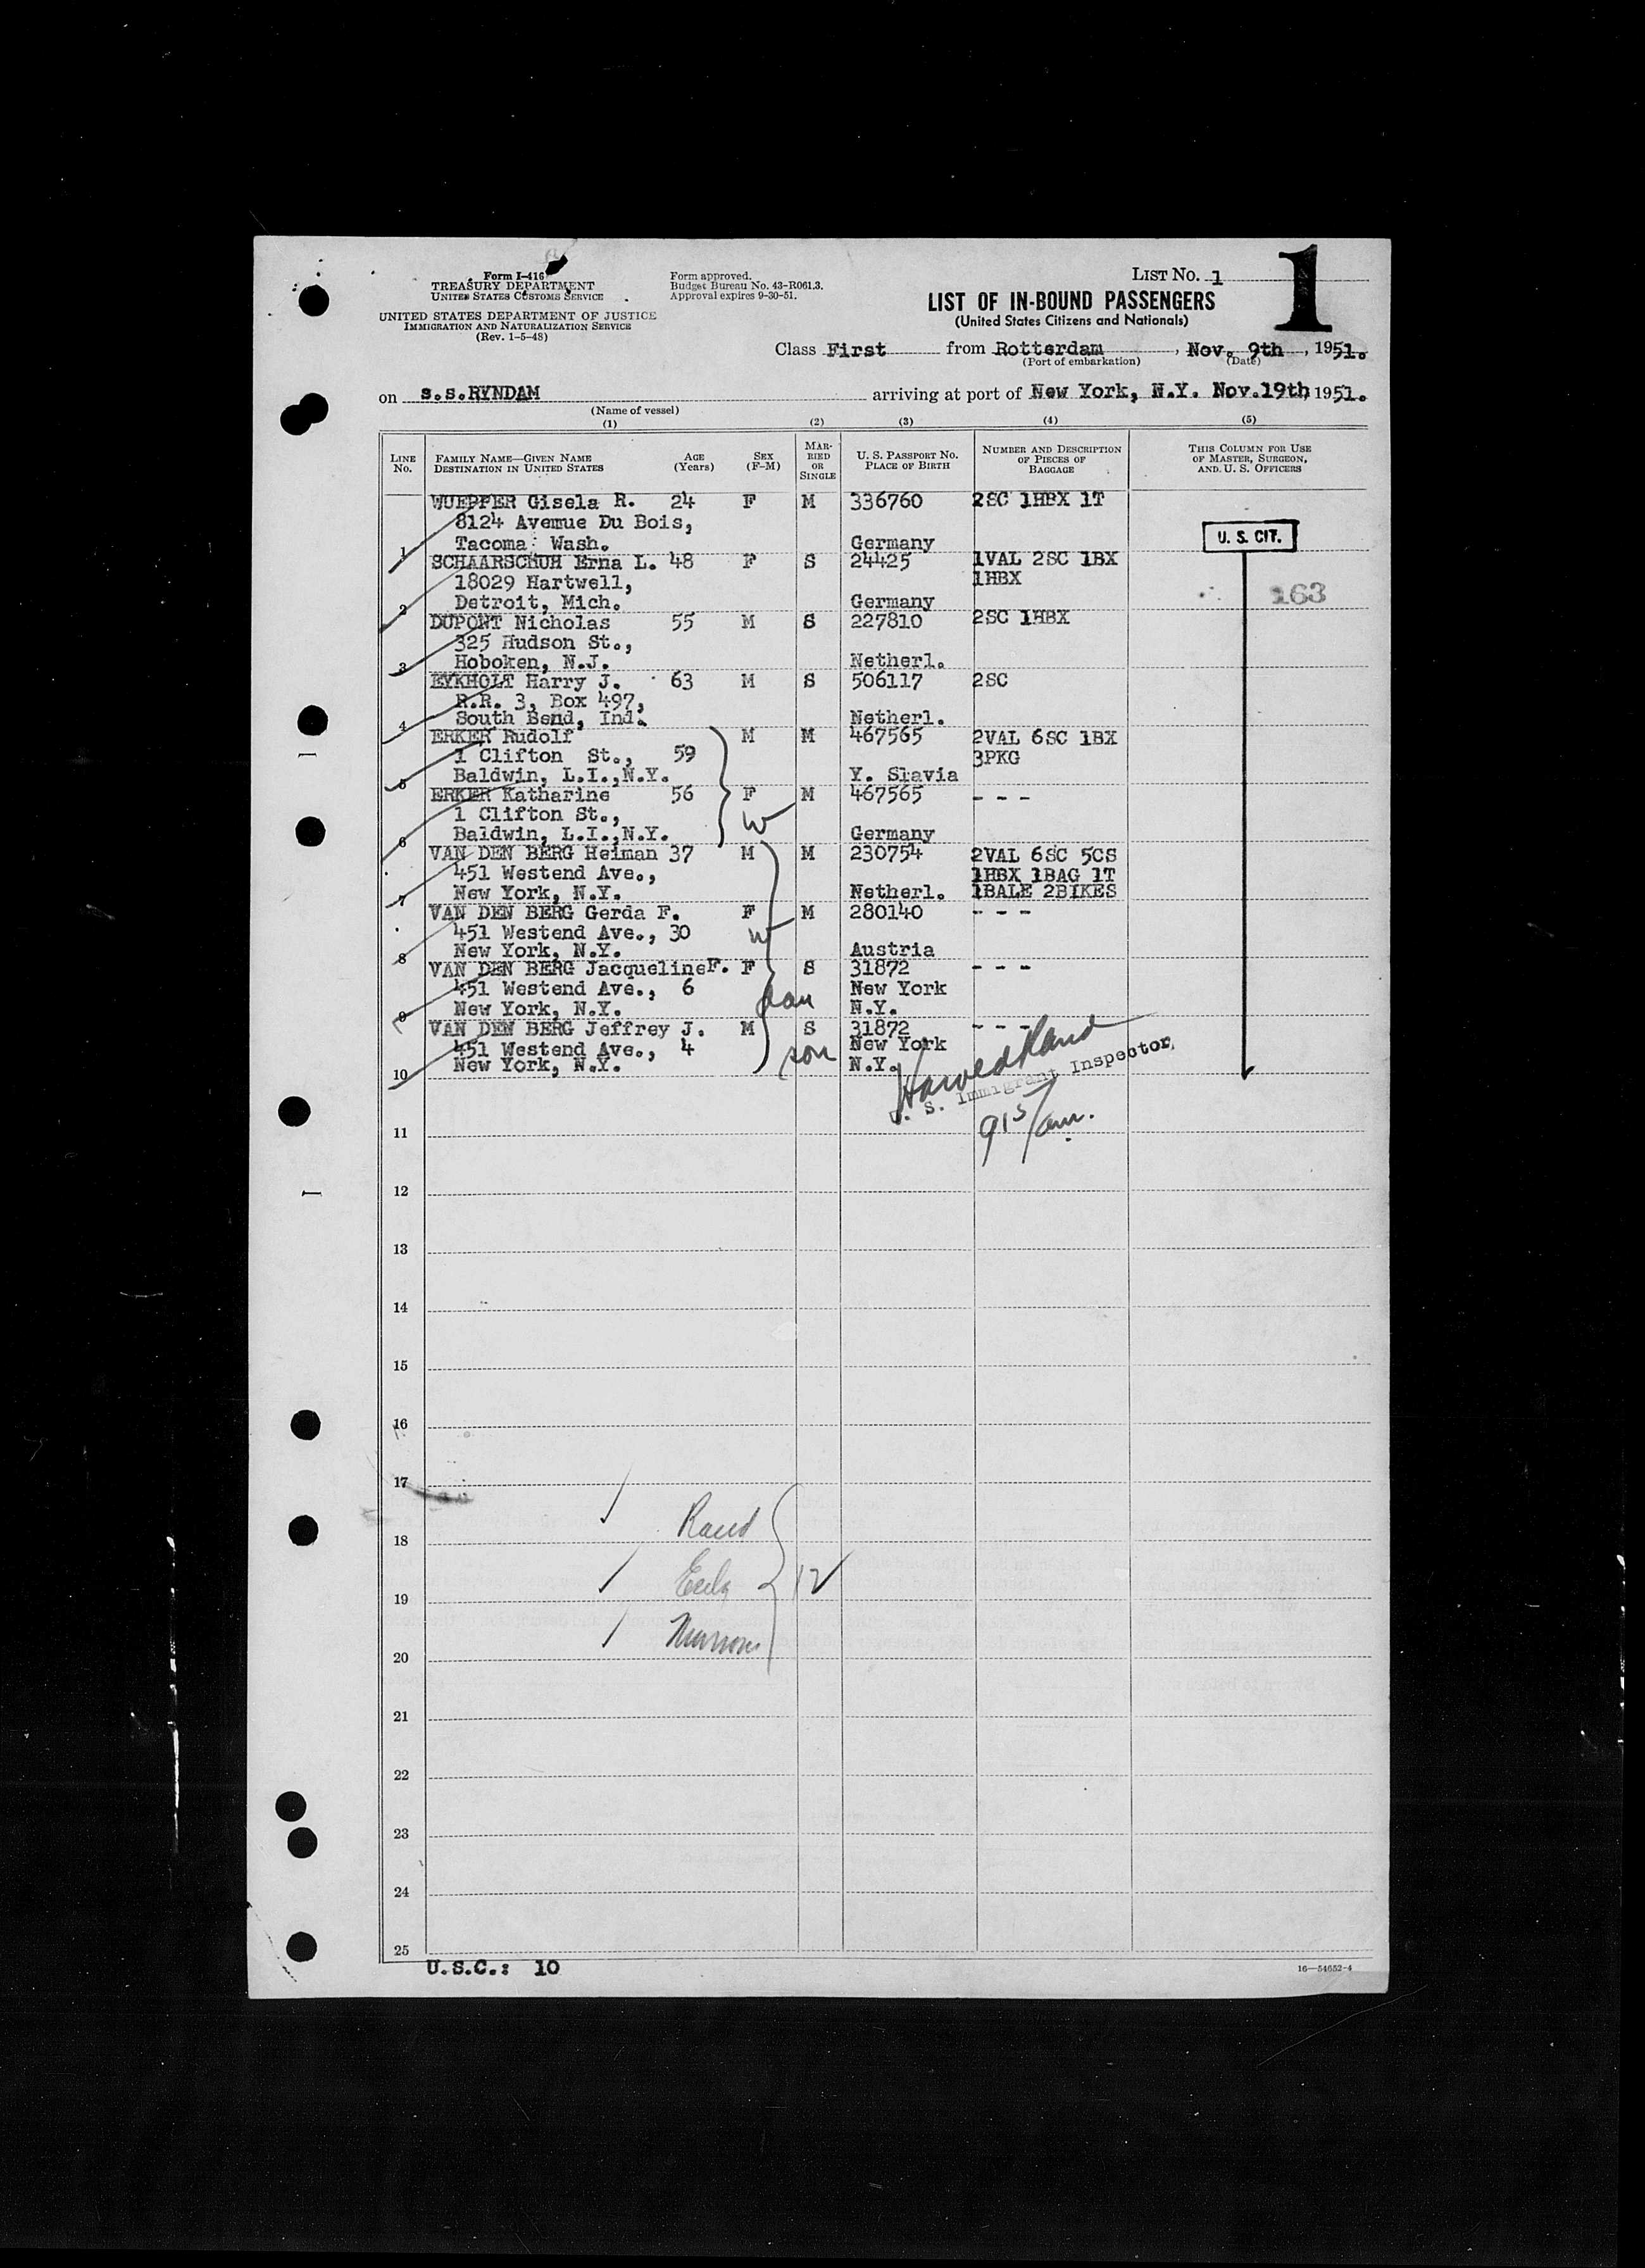 Form I-416
TREASURY DEPARTMENT
UNITED STATES CUSTOMS SERVICE
UNITED STATES DEPARTMENT OF JUSTICE
IMMIGRATION AND NATURALIZATION SERVICE
(Rev. 1-5-48)
Form approved.
Budget Bureau No. 43-R061.3.
Approval expires 9-30-51.
LIST NO. 1
1
LIST OF IN-BOUND PASSENGERS
(United States Citizens and Nationals)
Class First from Rotterdam, Nov. 9th, 1951.
(Port of embarkation) (Date)
on s.s.RYNDAM arriving at port of New York, N.Y. Nov.19th 1951.
(Name of vessel)
(1) (2) (3) (4) (5)
LINE NO. FAMILY NAME—GIVEN NAME DESTINATION IN UNITED STATES AGE (Years) SEX (F-M) MARRIED OR SINGLE U. S. PASSPORT NO. PLACE OF BIRTH NUMBER AND DESCRIPTION OF PIECES OF BAGGAGE THIS COLUMN FOR USE OF MASTER, SURGEON, AND U. S. OFFICERS
WUEPPER Gisela R. 24 F M 336760 2SC 1HBX 1T
8124 Avemue Du Bois,
1 Tacoma: Wash. Germany
U. S. CIT.
SCHAARSCHUH Erna L. 48 F S 24425 1VAL 2SC 1BX
18029 Hartwell, 1HBX
2 Detroit, Mich. Germany
163
DUPONT Nicholas 55 M S 227810 2SC 1HBX
325 Hudson St.,
3 Hoboken, N.J. Netherl.
EYKHOLT Harry J. 63 M S 506117 2SC
R.R. 3, Box 497,
4 South Bend, Ind. Netherl.
ERKER Rudolf M M 467565 2VAL 6SC 1BX
1 Clifton St., 59 3PKG
5 Baldwin, L.I.,N.Y. Y. Slavia
ERKER Katharine 56 F M 467565 - - -
1 Clifton St., W
6 Baldwin, L.I.,N.Y. Germany
VAN DEN BERG Heiman 37 M M 230754 2VAL 6SC 5CS
451 Westend Ave., 1HBX 1BAG 1T
7 New York, N.Y. Netherl. 1BALE 2BIKES
VAN DEN BERG Gerda F. F M 280140 - - -
451 Westend Ave., 30 W
8 New York, N.Y. Austria
VAN DEN BERG JacquelineF. F S 31872 - - -
451 Westend Ave., 6 dau New York
9 New York, N.Y. N.Y.
VAN DEN BERG Jeffrey J. M S 31872 - - -
451 Westend Ave., 4 son New York
10 New York, N.Y. N.Y.
U. S. Immigrant Inspector
915/am.
11
12
13
14
15
16
17
18
19
12
20
21
22
23
24
25
U.S.C.: 10
16—54652-4